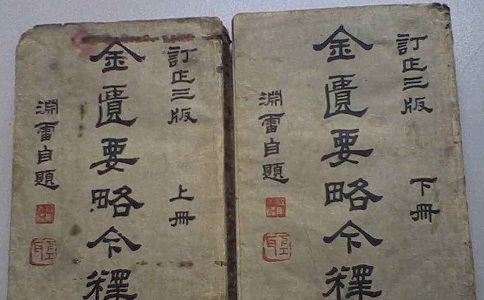 訂正三版
上冊
金匱要略今釋
淵雷自題
訂正三版
下冊
金匱要略今釋
淵雷自題